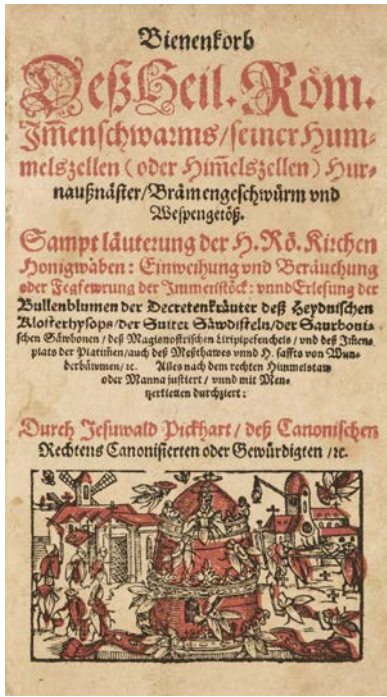 Bienenkorb
Deß Heil. Röm.
Im̃enschwarms / seiner Hum-
melszellen (oder Him̃elszellen) Hur-
naußnäster / Brämengeschwürm vnd
Wespengetöß.
Sampt läuterung der H. Rö. Kirchen
Honigwaben: Einweihung vnd Beräuchung
oder Fegfewrung der Immenstöck: vnnd Erlesung der
Bullenblumen der Decretenkräuter deß Heydnischen
Klosterhysops / der Suiter Säwdisteln / der Saurboni-
schen Säwbonen / deß Magisnostrischen Liripipefenchels / vnd deß Im̃en-
plats der Platim̃en / auch deß Meßthawes vnnd H. saffts von Wun-
derbäwmen / ꝛc. Alles nach dem rechten Himmelstaw
oder Manna justiert / vnnd mit Men-
gertletten durchziert:
Durch Jesuwald Pickhart / deß Canonischen
Rechtens Canonisierten oder Gewürdigten / ꝛc.